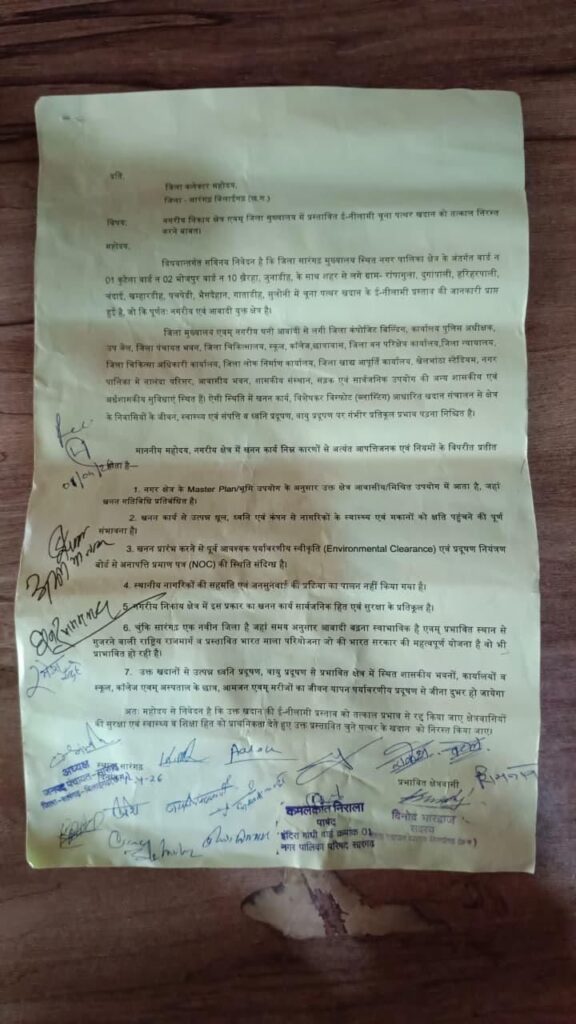 प्रति,
जिला कलेक्टर महोदय,
जिला - सारंगढ़ बिलाईगढ़ (छ.ग.)
विषय: नगरीय निकाय क्षेत्र एवम् जिला मुख्यालय में प्रस्तावित ई-नीलामी चूना पत्थर खदान को तत्काल निरस्त
करने बाबत।
महोदय,
विषयान्तर्गत सविनय निवेदन है कि जिला सारंगढ़ मुख्यालय स्थित नगर पालिका क्षेत्र के अंतर्गत वार्ड न
01 कुटेला वार्ड न 02 भोजपुर वार्ड न 10 खैरहा, जुनाडीह, के साथ शहर से लगे ग्राम- रांपागुला, दुर्गापाली, हरिहरपाली,
चंदाई, खम्हारडीह, पचपेडी, भैसदेहान, गाताडीह, सुलोनी में चूना पत्थर खदान के ई-नीलामी प्रस्ताव की जानकारी प्राप्त
हुई है, जो कि पूर्णतः नगरीय एवं आबादी युक्त क्षेत्र है।
जिला मुख्यालय एवम् नगरीय घनी आबादी से लगी जिला कंपोजिट बिल्डिंग, कार्यालय पुलिस अधीक्षक,
उप जेल, जिला पंचायत भवन, जिला चिकित्सालय, स्कूल, कॉलेज,छात्रावास, जिला वन परिक्षेत्र कार्यालय,जिला न्यायालय,
जिला चिकित्सा अधिकारी कार्यालय, जिला लोक निर्माण कार्यालय, जिला खाद्य आपूर्ति कार्यालय, खेलभांठा स्टेडियम, नगर
पालिका में नालंदा परिसर, आवासीय भवन, शासकीय संस्थान, सड़क एवं सार्वजनिक उपयोग की अन्य शासकीय एवं
अर्धशासकीय सुविधाएं स्थित हैं। ऐसी स्थिति में खनन कार्य, विशेषकर विस्फोट (ब्लास्टिंग) आधारित खदान संचालन से क्षेत्र
के निवासियों के जीवन, स्वास्थ्य एवं संपत्ति व ध्वनि प्रदूषण, वायु प्रदूषण पर गंभीर प्रतिकूल प्रभाव पड़ना निश्चित है।
माननीय महोदय, नगरीय क्षेत्र में खनन कार्य निम्न कारणों से अत्यंत आपत्तिजनक एवं नियमों के विपरीत प्रतीत
होता है—
1. नगर क्षेत्र के Master Plan/भूमि उपयोग के अनुसार उक्त क्षेत्र आवासीय/मिश्रित उपयोग में आता है, जहां
खनन गतिविधि प्रतिबंधित है।
2. खनन कार्य से उत्पन्न धूल, ध्वनि एवं कंपन से नागरिकों के स्वास्थ्य एवं मकानों को क्षति पहुंचने की पूर्ण
संभावना है।
3. खनन प्रारंभ करने से पूर्व आवश्यक पर्यावरणीय स्वीकृति (Environmental Clearance) एवं प्रदूषण नियंत्रण
बोर्ड से अनापत्ति प्रमाण पत्र (NOC) की स्थिति संदिग्ध है।
4. स्थानीय नागरिकों की सहमति एवं जनसुनवाई की प्रक्रिया का पालन नहीं किया गया है।
5. नगरीय निकाय क्षेत्र में इस प्रकार का खनन कार्य सार्वजनिक हित एवं सुरक्षा के प्रतिकूल है।
6. चूंकि सारंगढ़ एक नवीन जिला है जहां समय अनुसार आबादी बढ़ना स्वाभाविक है एवम् प्रभावित स्थान से
गुजरने वाली राष्ट्रिय राजमार्ग व प्रस्तावित भारत माला परियोजना जो की भारत सरकार की महत्वपूर्ण योजना है वो भी
प्रभावित हो रही है।
7. उक्त खदानों से उत्पन्न ध्वनि प्रदूषण, वायु प्रदूषण से प्रभावित क्षेत्र में स्थित शासकीय भवनों, कार्यालयों व
स्कूल, कॉलेज एवम् अस्पताल के छात्र, आमजन एवम् मरीजों का जीवन यापन पर्यावरणीय प्रदूषण से जीना दुभर हो जायेगा
अतः महोदय से निवेदन है कि उक्त खदान की ई-नीलामी प्रस्ताव को तत्काल प्रभाव से रद्द किया जाए क्षेत्रवासियों
की सुरक्षा एवं स्वास्थ्य व शिक्षा हित को प्राथमिकता देते हुए उक्त प्रस्तावित चुने पत्थर के खदान को निरस्त किया जाए।
सारंगढ़
अध्यक्ष
प्रभावित क्षेत्रवासी
कमलकांत निराला
पार्षद
इंदिरा गांधी वार्ड क्रमांक 01
नगर पालिका परिषद सारंगढ़
विनोद भारद्वाज
सदस्य